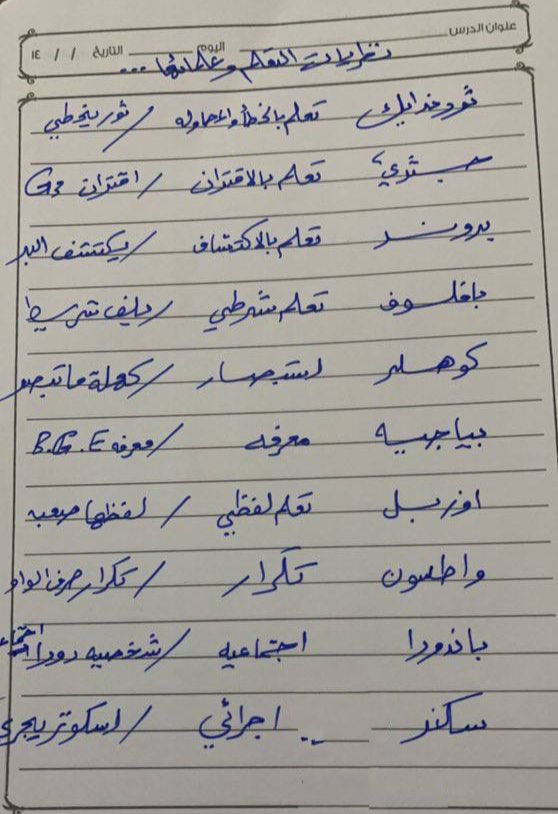 عنوان الدرس اليوم التاريخ / / ١٤
نظريات التعلم وعلمائها ...
ثورندايك تعلم بالخطأ والمحاوله / ثور يخطي
جثري تعلم بالاقتران / اقتران
برونر تعلم بالاكتشاف / يكتشف البر
بافلوف تعلم شرطي /
كوهلر استبصار / كهلة ما تبصر
بياجيه معرفه / معرفه B.G.E
اوزبل تعلم لفظي / لفظها صعبه
واطسون تكرار / تكرار حرف الواو
باندورا اجتماعيه / شخصيه دورا
سكنر اجرائي / اسكوتر يجري